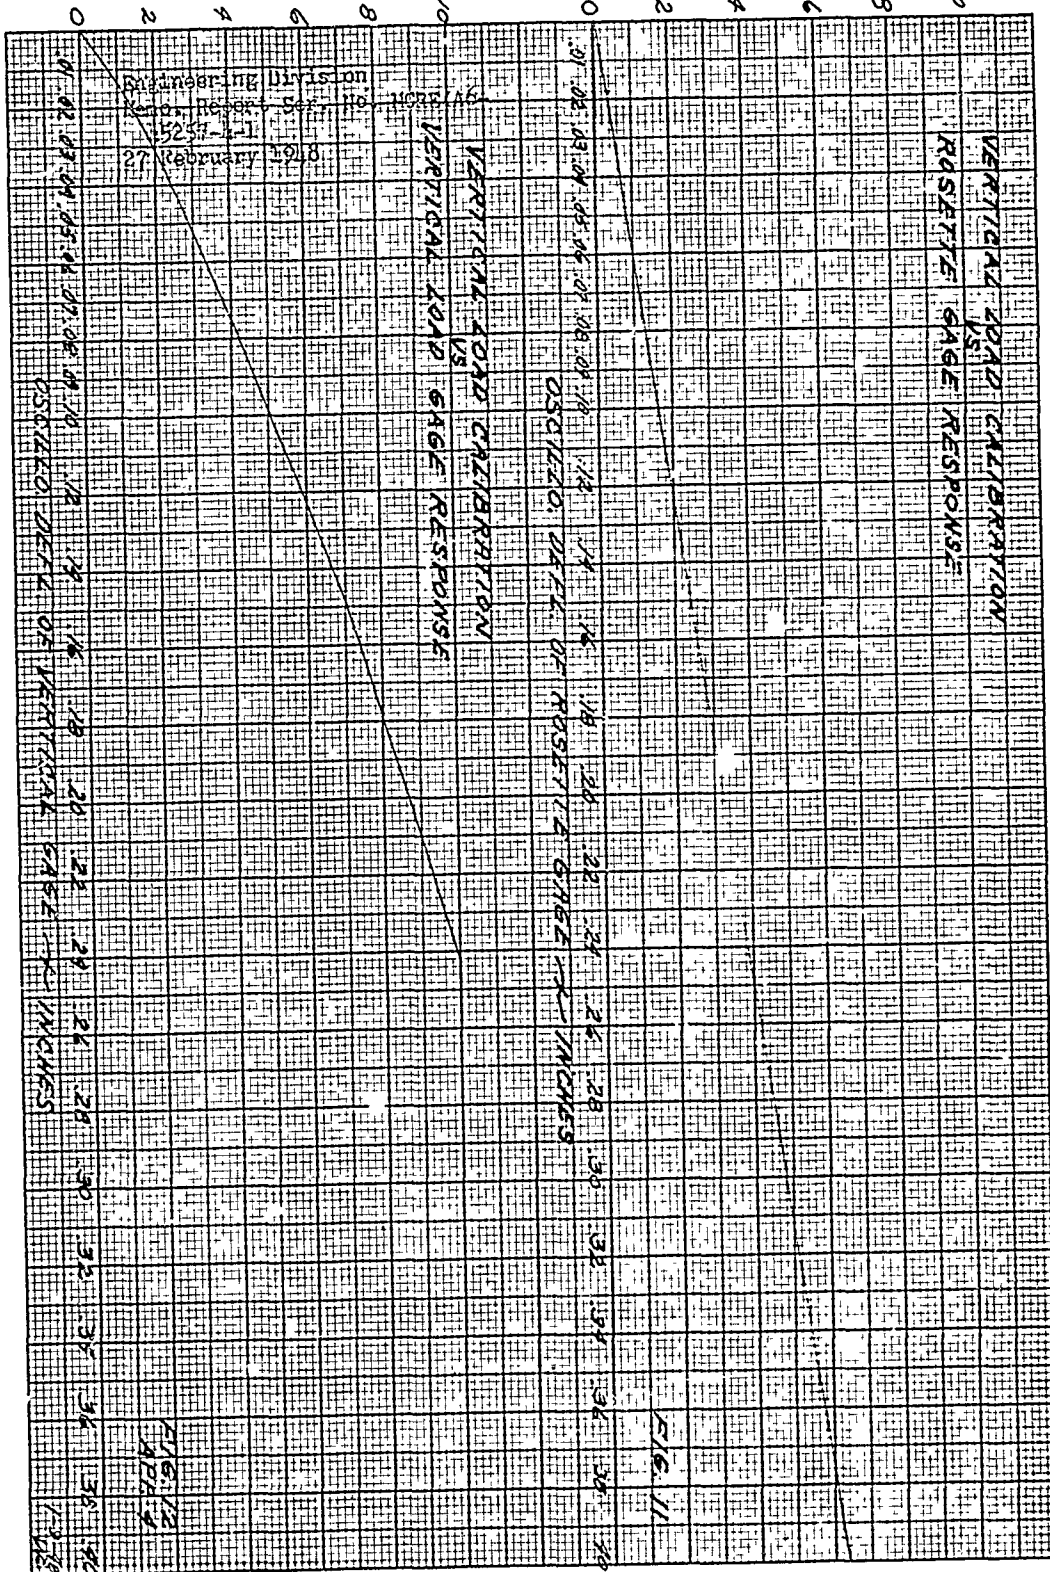 Engineering Division
Memo. Report Ser. No. MCREXA6-
5257-4-1
27 February 1948
VERTICAL LOAD CALIBRATION
VS
ROSETTE GAGE RESPONSE
0
2
4
6
8
0
.01 .02 .03 .04 .05 .06 .07 .08 .09 .10 .12 .14 .16 .18 .20 .22 .24 .26 .28 .30 .32 .34 .36 .38 .40
OSCILLO. DEFL. OF ROSETTE GAGE ~ INCHES
FIG. 11
VERTICAL LOAD CALIBRATION
VS
VERTICAL LOAD GAGE RESPONSE
0
2
4
6
8
10
.01 .02 .03 .04 .05 .06 .07 .08 .09 .10 .12 .14 .16 .18 .20 .22 .24 .26 .28 .30 .32 .35 .36 .38 .40
OSCILLO. DEFL. OF VERTICAL GAGE ~ INCHES
FIG. 12